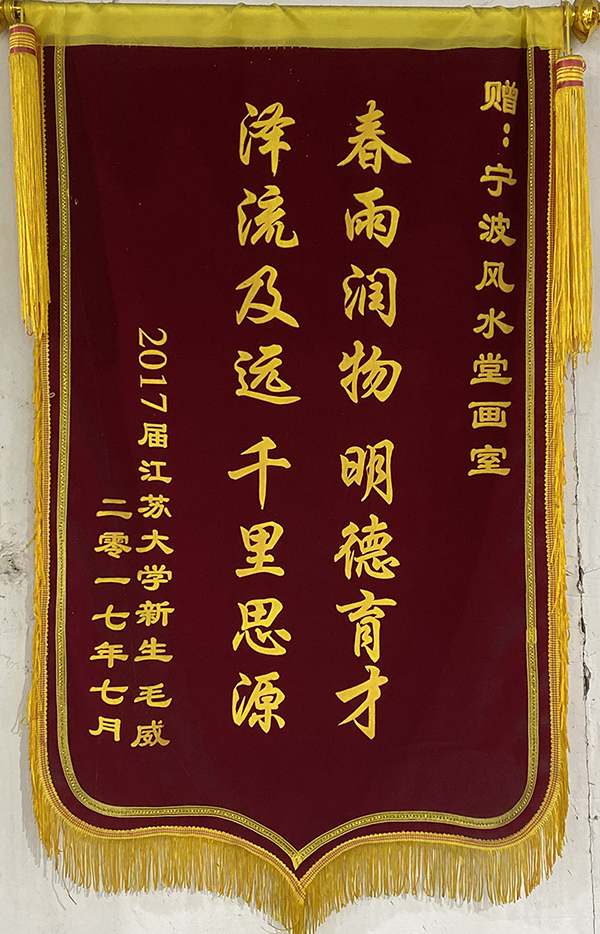 赠：宁波风水堂画室
春雨润物 明德育才
泽流及远 千里思源
2017届江苏大学新生 毛威
二零一七年七月